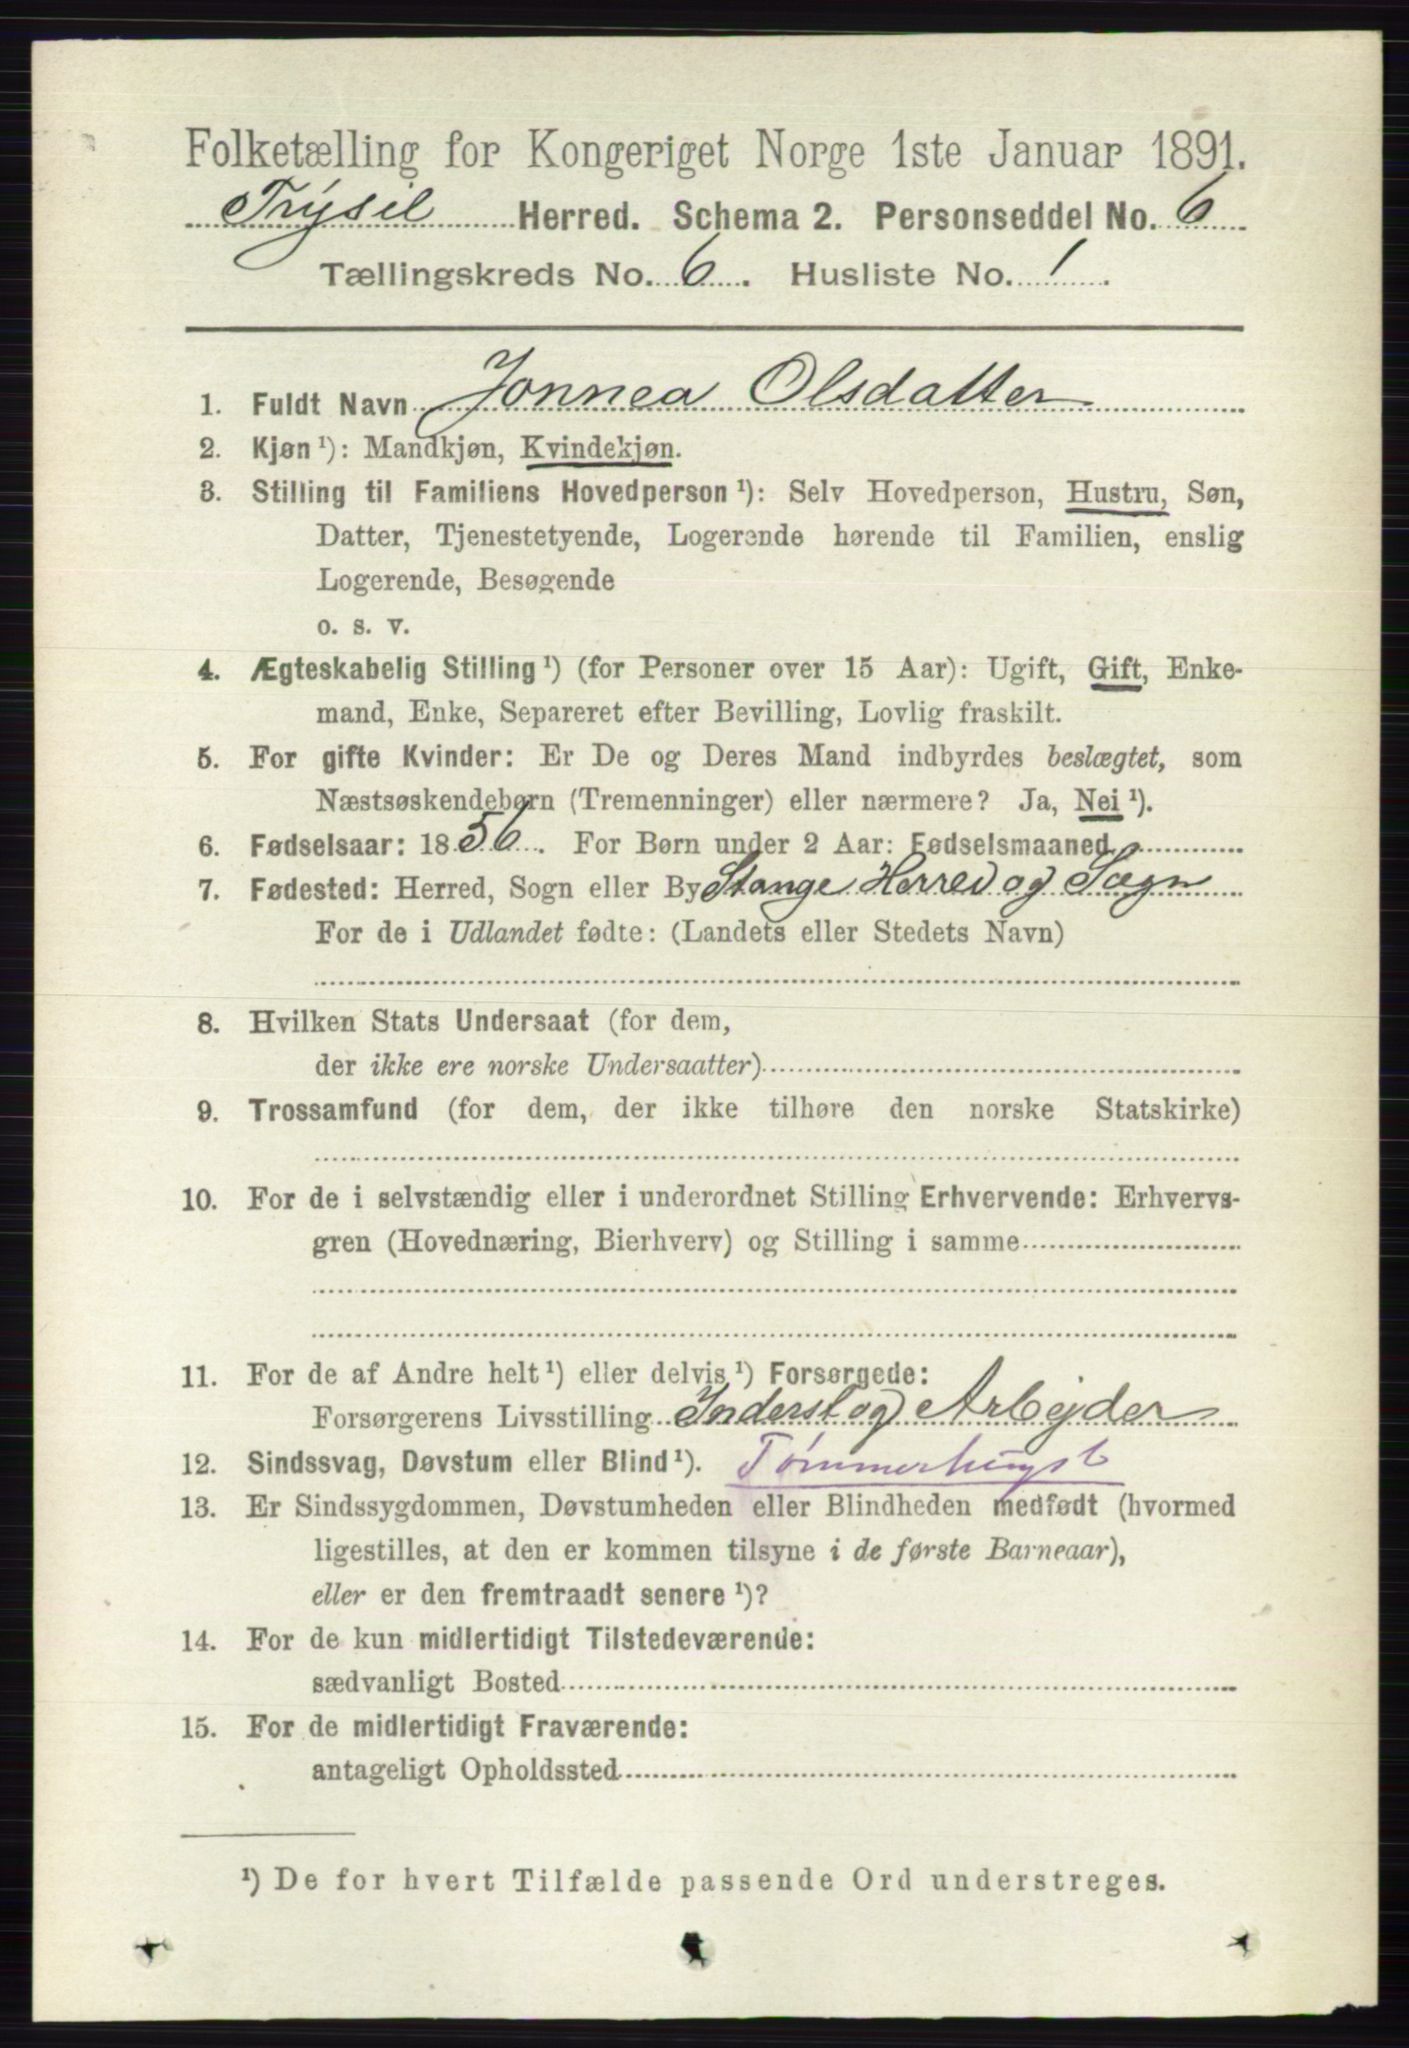 Folketælling for Kongeriget Norge 1ste Januar 1891.
Trysil Herred. Schema 2. Personseddel No. 6
Tællingskreds No. 6. Husliste No. 1.
1. Fuldt Navn Jonnea Olsdatter
2. Kjøn ¹): Mandkjøn, Kvindekjøn.
3. Stilling til Familiens Hovedperson ¹): Selv Hovedperson, Hustru, Søn,
Datter, Tjenestetyende, Logerende hørende til Familien, enslig
Logerende, Besøgende
o. s. v.
4. Ægteskabelig Stilling ¹) (for Personer over 15 Aar): Ugift, Gift, Enke-
mand, Enke, Separeret efter Bevilling, Lovlig fraskilt.
5. For gifte Kvinder: Er De og Deres Mand indbyrdes beslægtet, som
Næstsøskendebørn (Tremenninger) eller nærmere? Ja, Nei ¹).
6. Fødselsaar: 1856. For Børn under 2 Aar: Fødselsmaaned
7. Fødested: Herred, Sogn eller By Stange Herred og Sogn
For de i Udlandet fødte: (Landets eller Stedets Navn)
8. Hvilken Stats Undersaat (for dem,
der ikke ere norske Undersaatter)
9. Trossamfund (for dem, der ikke tilhøre den norske Statskirke)
10. For de i selvstændig eller i underordnet Stilling Erhvervende: Erhvervs-
gren (Hovednæring, Bierhverv) og Stilling i samme
11. For de af Andre helt ¹) eller delvis ¹) Forsørgede:
Forsørgerens Livsstilling Inderst og Arbejder
12. Sindssvag, Døvstum eller Blind ¹). Tømmerhugst
13. Er Sindssygdommen, Døvstumheden eller Blindheden medfødt (hvormed
ligestilles, at den er kommen tilsyne i de første Barneaar),
eller er den fremtraadt senere ¹)?
14. For de kun midlertidigt Tilstedeværende:
sædvanligt Bosted
15. For de midlertidigt Fraværende:
antageligt Opholdssted
¹) De for hvert Tilfælde passende Ord understreges.